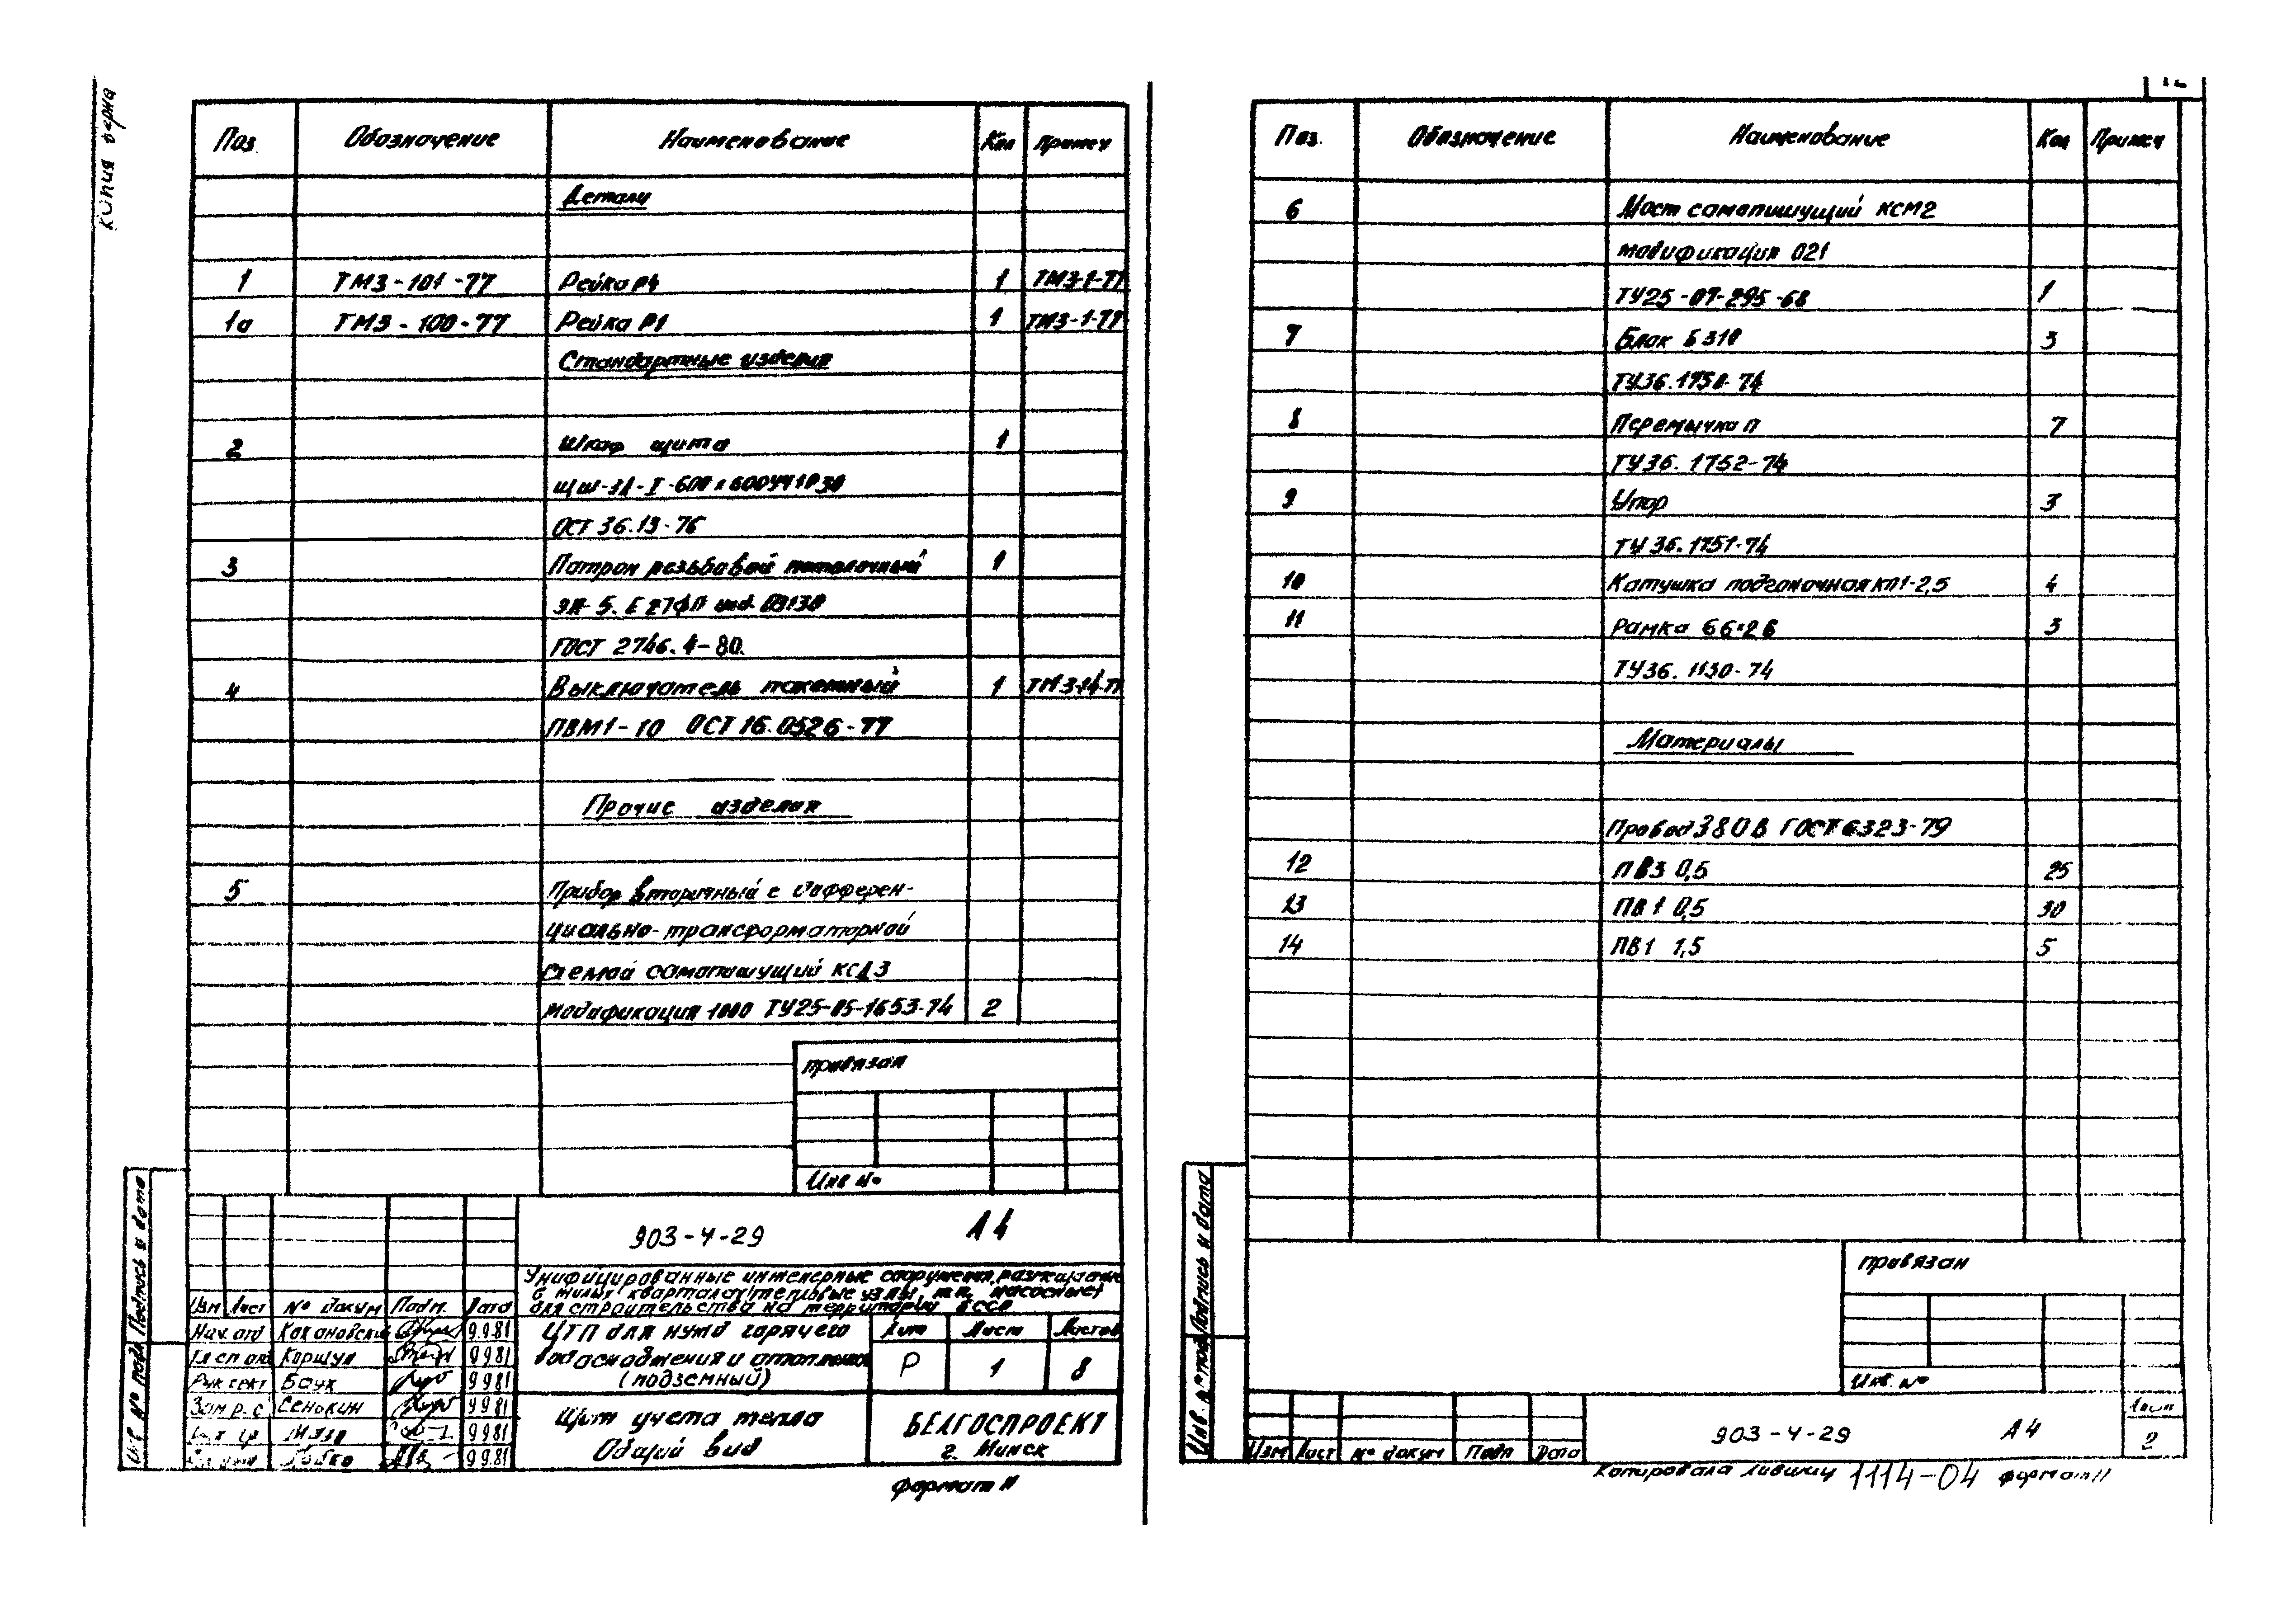 Копия верна
Поз. Обозначение Наименование Кол Примеч
Детали
1 ТМ3-101-77 Рейка Р4 1 ТМ3-1-77
1а ТМ3-100-77 Рейка Р1 1 ТМ3-1-77
Стандартные изделия
2 Шкаф щита 1
ЩШ-ЗД-I-600х600УЧIР30
ОСТ 36.13-76
3 Патрон резьбовой потолочный 1
ГОСТ 2746.4-80.
4 Выключатель пакетный 1
ПВМ1-10 ОСТ 16.0526-77
Прочие изделия
5 Прибор вторичный с дифферен-
циально-трансформаторной
схемой самопишущий КСД3
модификация 1000 ТУ25-05-1653-74 2
привязан
Инв №
903-4-29 А4
Унифицированные инженерные сооружения, размещаемые
в жилых кварталах (тепловые узлы, насосные)
для строительства на территории БССР
Изм Лист № докум Подп. Дата
Нач. отд Кохановский 9.9.81
Коршун 9.9.81
Рук сект Баук 9.9.81
Сенокин 9.9.81
9.9.81
9.9.81
ЦТП для нужд горячего
водоснабжения и отопления
(подземный)
Лит Лист Листов
Р 1 8
Щит учета тепла
Общий вид
БЕЛГОСПРОЕКТ
г. Минск
Формат 11
Инв № подл Подпись и дата
12
Поз. Обозначение Наименование Кол Примеч
6 Мост самопишущий КСМ2
модификация 021
ТУ25-07-295-68 1
7 Блок Б310 3
ТУ36.1750-74
8 Перемычка П 7
ТУ36.1752-74
9 Упор 3
ТУ36.1751-74
10 Катушка подгоночная КП1-2,5 4
11 Рамка 66×26 3
ТУ36.1130-74
Материалы
Провод 380В ГОСТ 6323-79
12 ПВ3 0,5 25
13 ПВ1 0,5 30
14 ПВ1 1,5 5
привязан
Инв. №
Изм Лист № докум Подп Дата
903-4-29 А4
Лист
2
Инв. № подл Подпись и дата
Копировала 1114-04 формат 11